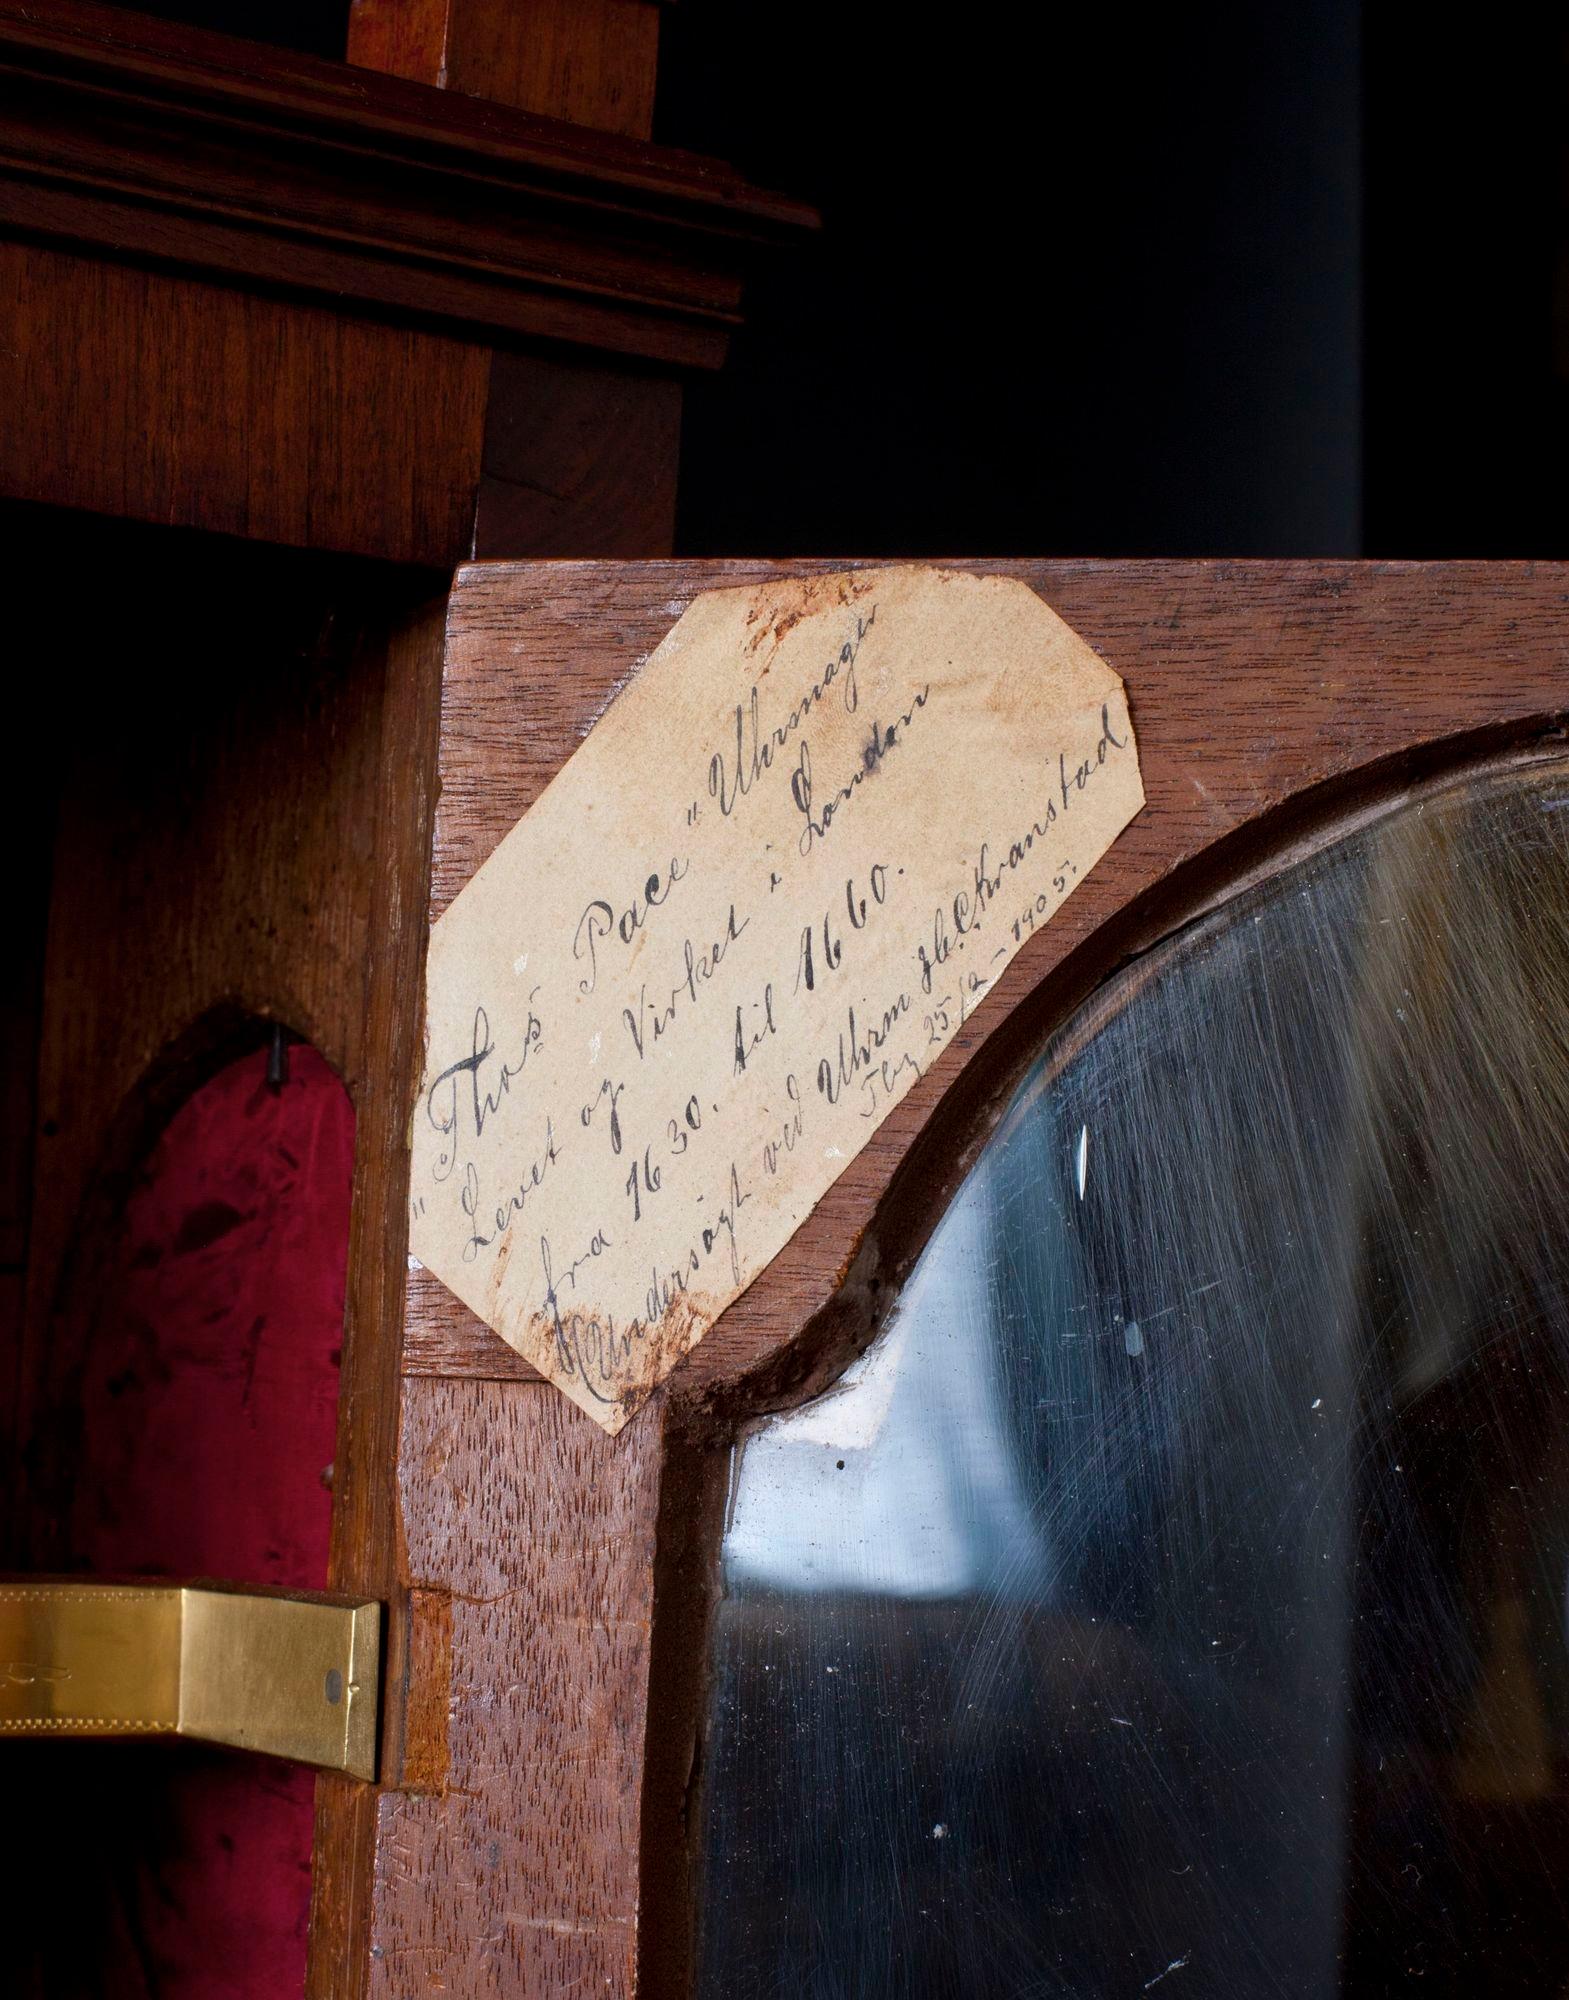 "Thos Pace" Uhrmager
Levet og Virket i London
fra 1630. til 1660.
(Undersøgt ved Uhrm H.C. Kranstad
25/2 - 1905.